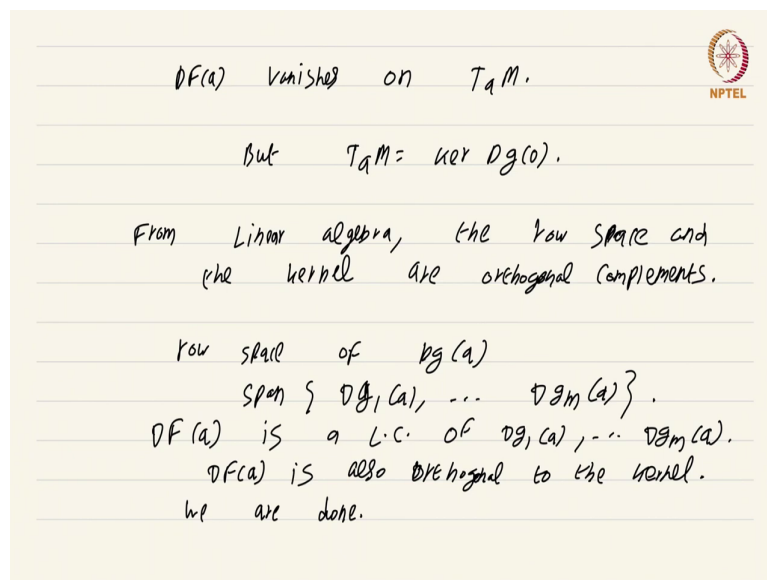 DF(a) vanishes on TaM.
NPTEL
But TaM = ker Dg(0).
From Linear algebra, the row space and
the kernel are orthogonal complements.
row space of Dg(a)
span { Dg₁(a), ... Dgm(a) }.
DF(a) is a L.C. of Dg₁(a), ... Dgm(a).
DF(a) is also orthogonal to the kernel.
We are done.